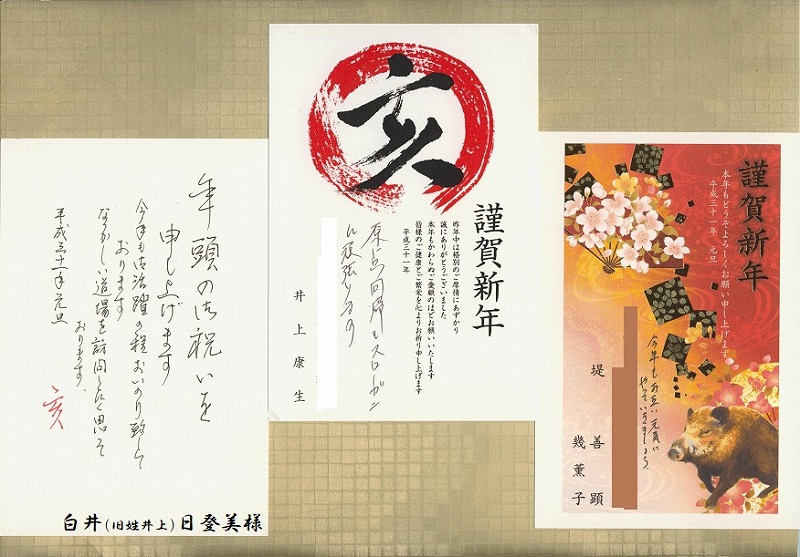 年頭の御祝いを
申し上げます
今年も御活躍の程おいのり致して
おります
なつかしい道場を訪問したく思って
おります
平成三十一年元旦
亥
白井(旧姓井上)日登美様
亥
謹賀新年
昨年中は格別のご厚情にあずかり
誠にありがとうございました
本年もかわらぬご愛顧のほどお願いいたします
皆様のご健康とご繁栄を心よりお祈り申し上げます
平成三十一年
原点回帰をスローガン
に頑張ります
井上康生
謹賀新年
本年もどうぞよろしくお願い申し上げます
平成三十一年 元旦
今年もお互い元気に
やっていきましょう
堤 善顕
幾薫子